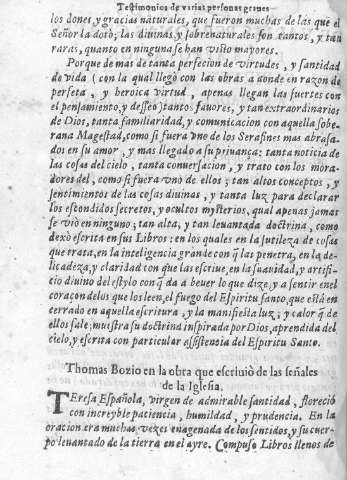 Testimonios de varias personas graues
los dones, y gracias naturales, que fueron muchas de las que el
Señor la dotò; las diuinas, y sobrenaturales son tantos, y tan
raras, quanto en ninguna se han visto mayores.
Porque de mas de tanta perfeccion de virtudes, y santidad
de vida (con la qual llegò con las obras a donde en razon de
perfeta, y heroica virtud, apenas llegan las fuertes con
el pensamiento, y desseo) tantos fauores, y tan extraordinarios
de Dios, tanta familiaridad, y comunicacion con aquella sobe-
rana Magestad, como si fuera vno de los Serafines mas abrasa-
dos en su amor, y mas llegado a su priuança: tanta noticia de
las cosas del cielo, tanta conuersacion, y trato con los mora-
dores del, como si fuera vno de ellos; tan altos conceptos, y
sentimientos de las cosas diuinas, y tanta luz para declarar
los escondidos secretos, y ocultos mysterios, qual apenas jamas
se viò en ninguno; tan alta, y tan leuantada doctrina, como
dexò escrita en sus Libros: en los quales en la sutileza de cosas
que trata, en la inteligencia grande con q̃ las penetra, en la de-
licadeza, y claridad con que las escriue, en la suauidad, y artifi-
cio diuino del estylo con q̃ da a beuer lo que dize, y a sentir en el
coraçon de los que los leen, el fuego del Espiritu santo, que està en
cerrado en aquella escritura, y la manifiesta luz, y calor q̃ de
ellos sale; muestra su doctrina inspirada por Dios, aprendida del
cielo, y escrita con particular assistencia del Espiritu Santo.
Thomas Bozio en la obra que escriuiò de las señales
de la Iglesia.
Teresa Española, virgen de admirable santidad, floreciò
con increyble paciencia, humildad, y prudencia. En la
oracion era muchas vezes enagenada de los sentidos, y su cuer-
po leuantado de la tierra en el ayre. Compuso Libros llenos de